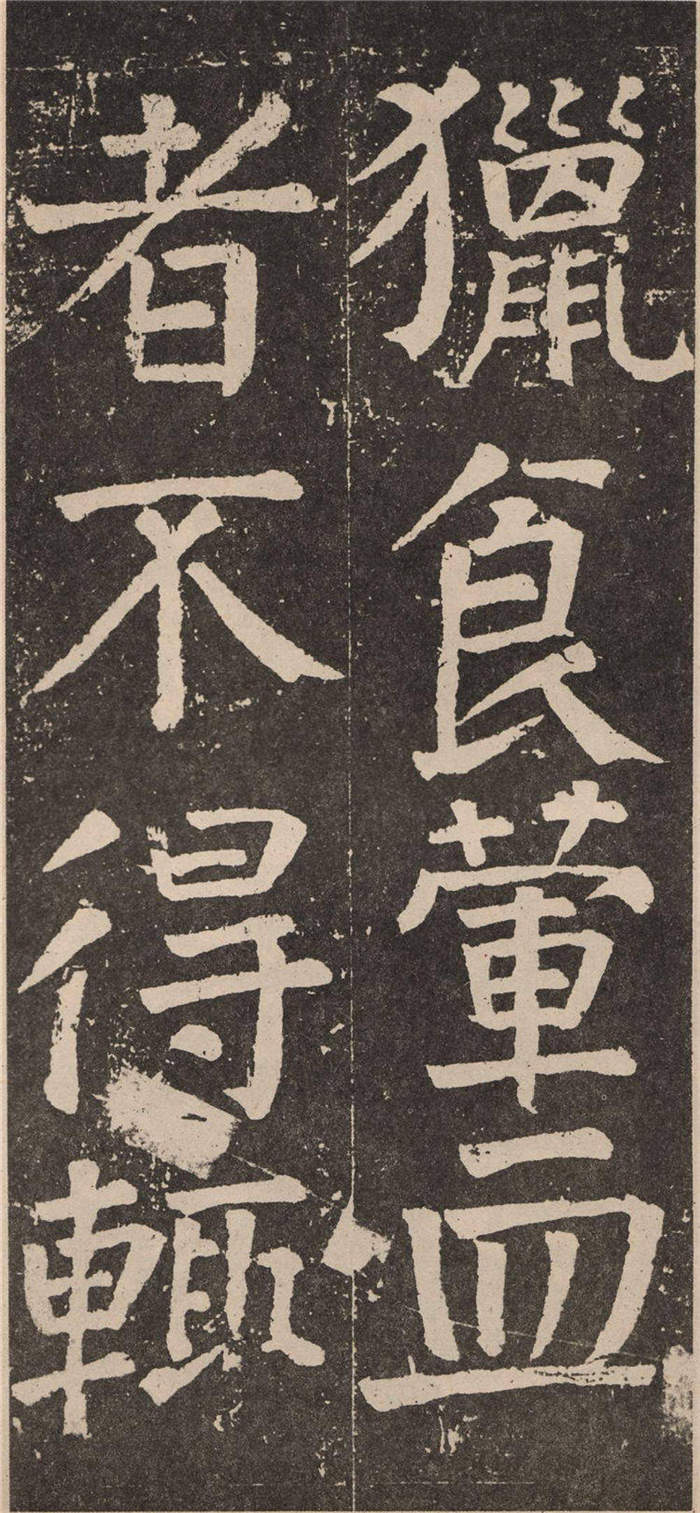 獵食葷血
者不得輙